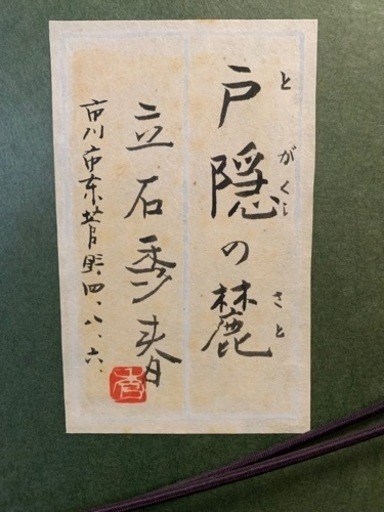 戸隠の麓
とがくし さと
立石秀春
市川市東菅野四、八、六、